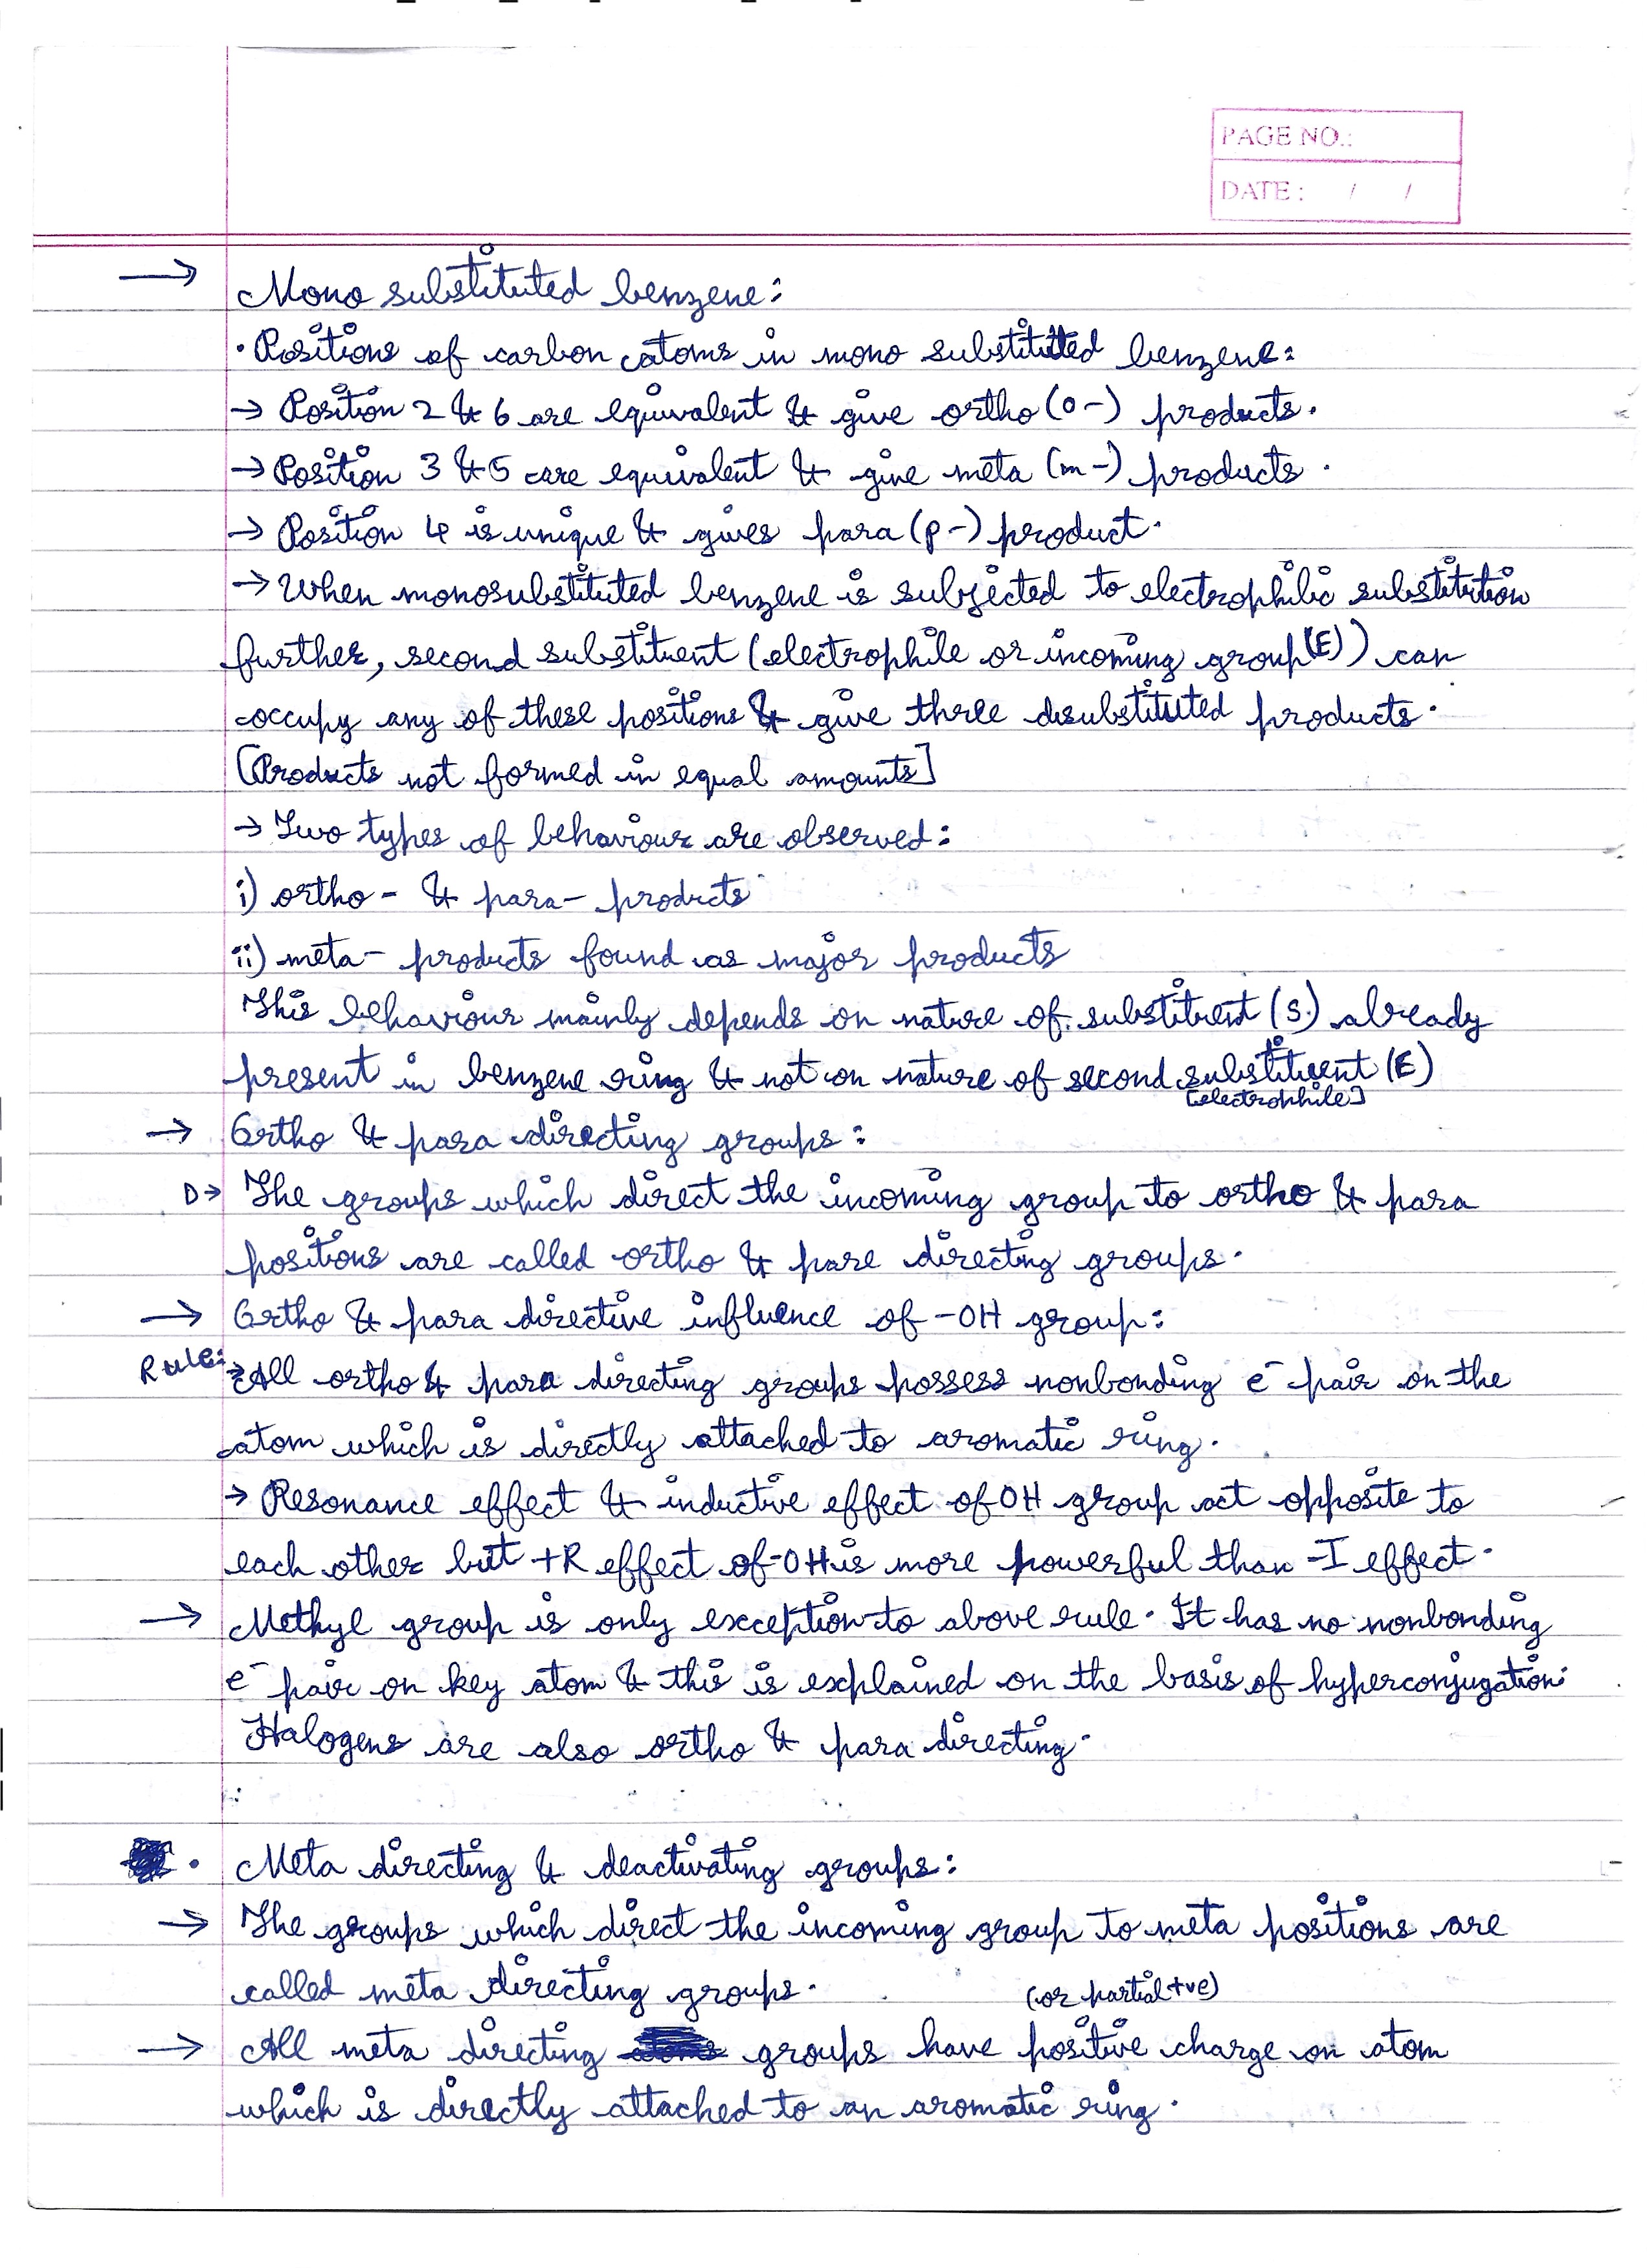 PAGE NO.:
DATE : / /
→ Mono substituted benzene:
• Positions of carbon atoms in mono substituted benzene:
→ Position 2 & 6 are equivalent & give ortho (o-) products.
→ Position 3 & 5 are equivalent & give meta (m-) products.
→ Position 4 is unique & gives para (p-) product.
→ When monosubstituted benzene is subjected to electrophilic substitution
further, second substituent (electrophile or incoming group (E)) can
occupy any of these positions & give three disubstituted products.
[Products not formed in equal amounts]
→ Two types of behaviour are observed:
i) ortho- & para- products
ii) meta- products found as major products
This behaviour mainly depends on nature of substituent (S) already
present in benzene ring & not on nature of second substituent (E)
[electrophile]
→ Ortho & para directing groups:
D→ The groups which direct the incoming group to ortho & para
positions are called ortho & pare directing groups.
→ Ortho & para directive influence of -OH group:
Rule: → All ortho & para directing groups possess nonbonding e⁻ pair on the
atom which is directly attached to aromatic ring.
→ Resonance effect & inductive effect of OH group act opposite to
each other but +R effect of -OH is more powerful than -I effect.
→ Methyl group is only exception to above rule. It has no nonbonding
e⁻ pair on key atom & this is explained on the basis of hyperconjugation.
Halogens are also ortho & para directing.
• Meta directing & deactivating groups:
→ The groups which direct the incoming group to meta positions are
called meta directing groups.
(or partial +ve)
→ All meta directing groups have positive charge on atom
which is directly attached to an aromatic ring.